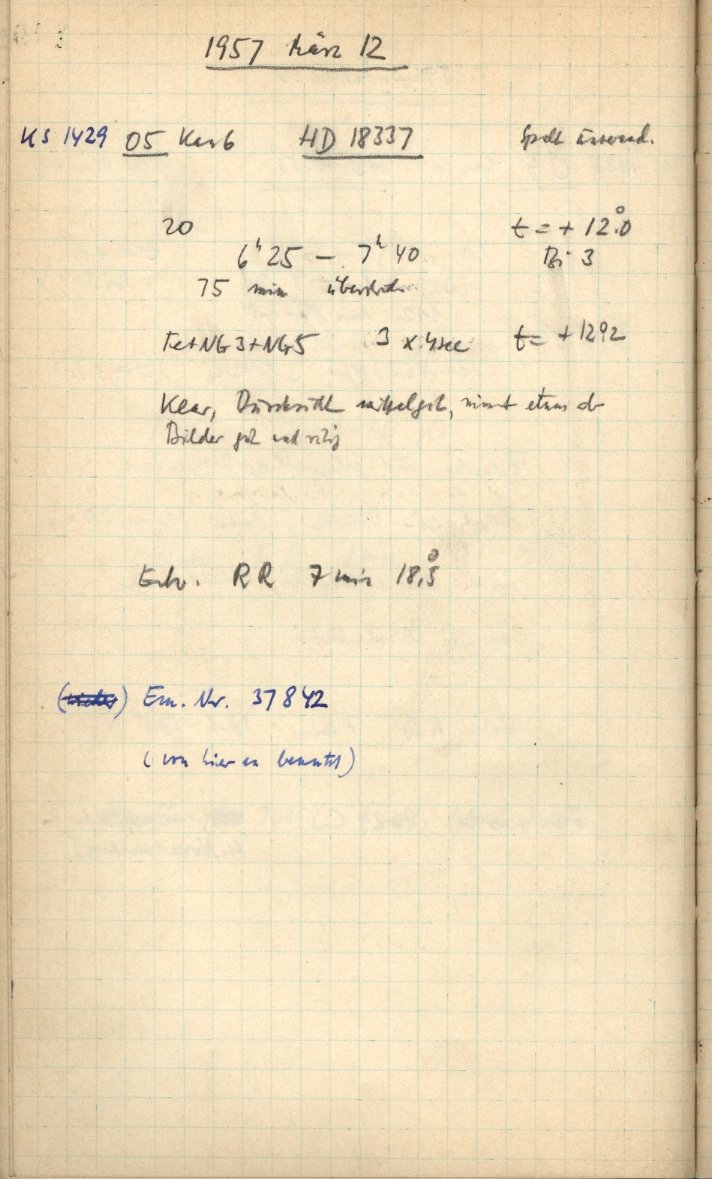 1957 März 12
KS 1429 05 Kas b HD 18337 Spalt
20 t = + 12.°0
6ʰ 25 – 7ʰ 40 Bi 3
75 min
Tet NG3+NG5 3 x 4sec t = +12°2
Klar, Durchsicht mittelgut, nimmt etwas ab
Bilder gut und ruhig
Entw. RR 7 min 18,°5
Em. Nr. 37842
(von hier an benutzt)